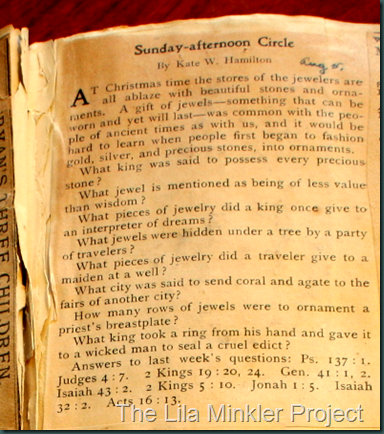 Sunday-afternoon Circle
By Kate W. Hamilton
Aug 5,
AT Christmas time the stores of the jewelers are
all ablaze with beautiful stones and orna-
ments. A gift of jewels—something that can be
worn and yet will last—was common with the peo-
ple of ancient times as with us, and it would be
hard to learn when people first began to fashion
gold, silver, and precious stones, into ornaments.
What king was said to possess every precious
stone?
What jewel is mentioned as being of less value
than wisdom?
What pieces of jewelry did a king once give to
an interpreter of dreams?
What jewels were hidden under a tree by a party
of travelers?
What pieces of jewelry did a traveler give to a
maiden at a well?
What city was said to send coral and agate to the
fairs of another city?
How many rows of jewels were to ornament a
priest's breastplate?
What king took a ring from his hand and gave it
to a wicked man to seal a cruel edict?
Answers to last week's questions: Ps. 137:1.
Judges 4:7. 2 Kings 19:20, 24. Gen. 41:1, 2.
Isaiah 43:2. 2 Kings 5:10. Jonah 1:5. Isaiah
32:2. Acts 16:13.
THREE CHILDREN
The Lila Minkler Project